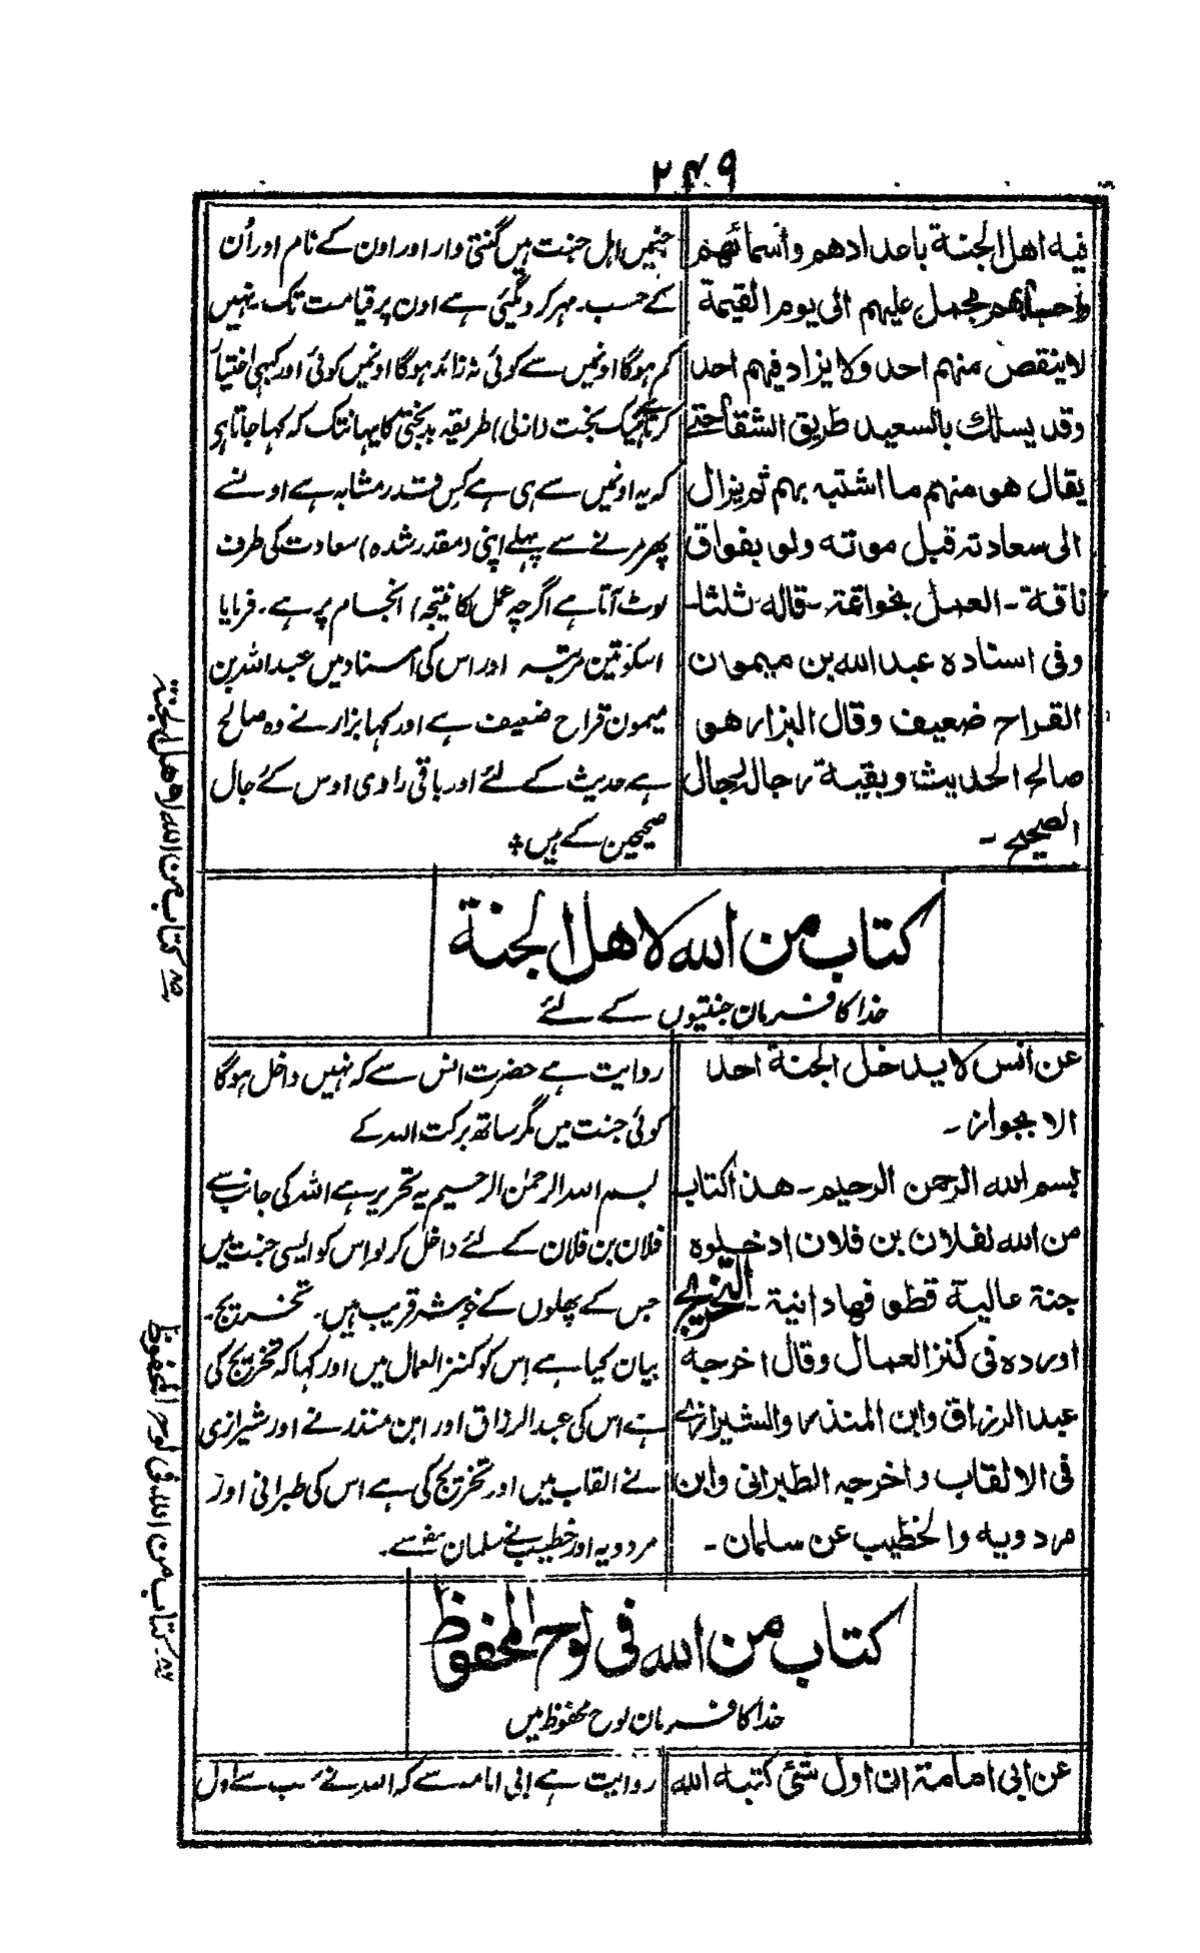 ۲۴۹
فیه اهل الجنة باعدادهم واسمائهم
واحسابهم مجمل علیهم الی یوم القیمة
لا ینقص منهم احد ولا یزاد فیهم احد
وقد یسلك بالسعید طریق الشقا حتے
یقال هو منهم ما اشتبه بهم ثم یزال
الی سعادته قبل موته ولو بفواق
ناقة - العمل بخواتمة - قاله ثلثا -
وفی اسناده عبد الله بن میمون
القراح ضعیف وقال البزار هو
صالح الحدیث وبقیة رجاله رجال
الصحیح -
جنمیں اہل جنت ہیں گنتی وار اور اون کے نام اور اُن
کے حسب ۔ مہر کر دیگئی ہے اون پر قیامت تک ۔ نہیں
کم ہوگا اونمیں سے کوئی نہ زائد ہوگا اونمیں کوئی اور کبھی اختیار
کرتا ہے نیک بخت (ازلی) طریقہ بدبختی کا یہانتک کہ کہا جاتا ہو
کہ یہ اونمیں سے ہی ہے کس قدر مشابہ ہے اونسے
پھر مرنے سے پہلے اپنی (مقدر شدہ) سعادت کی طرف
لوٹ آتا ہے اگرچہ عمل کا نتیجہ) انجام پر ہے ۔ فرمایا
اسکو تین مرتبہ اور اس کی اسناد میں عبد اللہ بن
میمون قراح ضعیف ہے اور کہا بزار نے وہ صالح
ہے حدیث کے لئے اور باقی راوی اوس کے رجال
صحیحین کے ہیں ۞
کتاب من الله لاهل الجنة
خدا کا فرمان جنتیوں کے لئے
عن انس لا یدخل الجنة احد
الا بجواز -
بسم الله الرحمن الرحیم - هذا کتاب
من الله لفلان بن فلان ادخلوه
جنة عالیة قطوفها دانیة - التخریج
اورده فی کنز العمال وقال اخرجه
عبد الرزاق وابن المنذر والشیرازے
فی الالقاب واخرجه الطبرانی وابن
مردویه والخطیب عن سلمان -
روایت ہے حضرت انس سے کہ نہیں داخل ہوگا
کوئی جنت میں مگر ساتھ برکت اللہ کے
بسم اللہ الرحمٰن الرحیم یہ تحریر ہے اللہ کی جانب سے
فلان بن فلان کے لئے داخل کر لو اس کو ایسی جنت میں
جس کے پھلوں کے خوشہ قریب ہیں ۔ تخریج ۔
بیان کیا ہے اس کو کنز العمال میں اور کہا کہ تخریج کی
ہے اس کی عبد الرزاق اور ابن منذر نے اور شیرازی
نے القاب میں اور تخریج کی ہے اس کی طبرانی اور
مردویہ اور خطیب نے سلمان سے ۔
کتاب من الله فی لوح المحفوظ
خدا کا فرمان لوح محفوظ میں
عن ابی امامة ان اول شئ کتبه الله
روایت ہے ابی امامہ سے کہ اللہ نے سب سے اول
کتاب من الله لاهل الجنة
کتاب من الله فی لوح المحفوظ